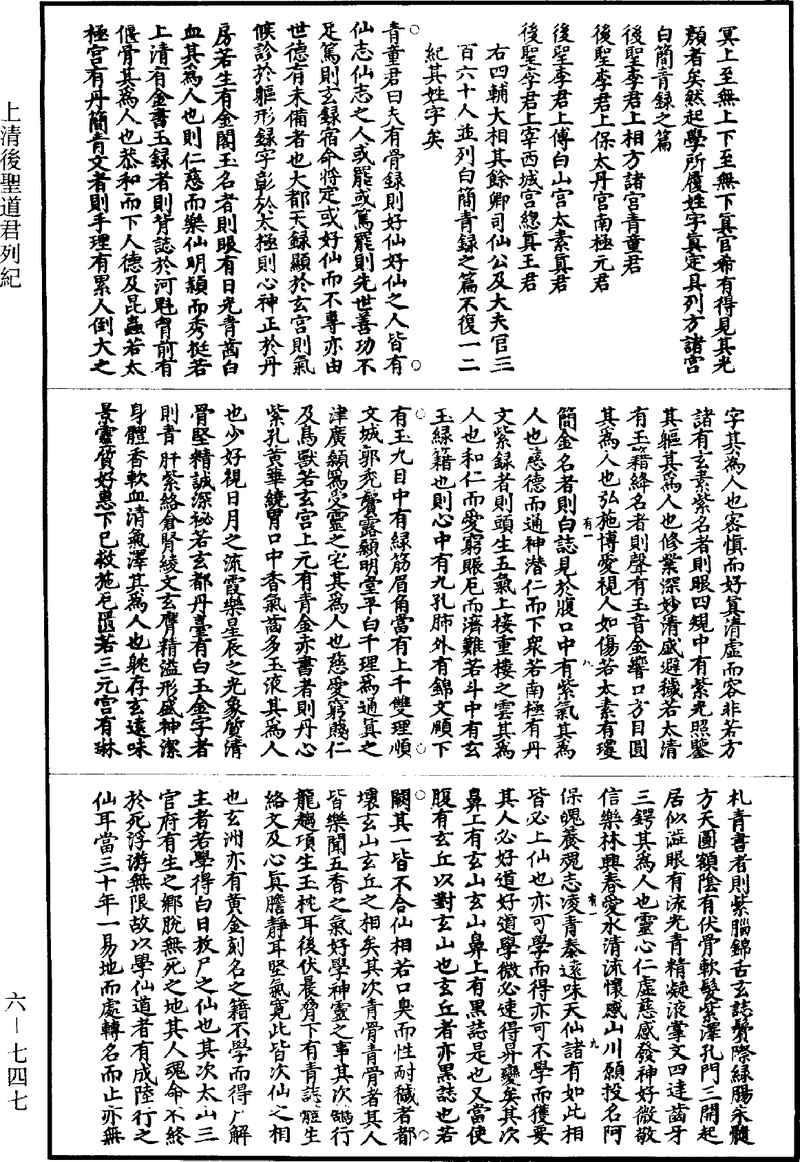 上清後聖道君列紀
冥上至無上下至無下真官希有得見其光
顏者矣然起學所履姓字真定具列方諸宮
白簡青録之篇
後聖李君上相方諸宮青童君
後聖李君上保太丹宮南極元君
後聖李君上傅白山宮太素真君
後聖李君上宰西城宮總真王君
右四輔大相其餘卿司仙公及大夫官三
百六十人並列白簡青録之篇不復一二
紀其姓字矣
青童君曰夫有骨録則好仙好仙之人皆有
仙志仙志之人或罷或篤罷則先世善功不
足篤則玄録宿命將定或好仙而不專亦由
世德有未備者也大都天録顯於玄宮則氣
候診於軀形録字彰於太極則心神正於丹
房若生有金閣玉名者則眼有日光青齒白
血其為人也則仁慈而樂仙明穎而秀挺若
上清有金書玉録者則背誌於河魁胷前有
偃骨其為人也恭和而下人德及昆蟲若太
極宮有丹簡青文者則手理有累人倒大之
字其為人也密慎而好真清虛而容非若方
諸有玄書紫名者則眼四規中有紫光照鑒
其軀其為人也修業深妙清感避穢若太清
有玉籍絳名者則聲有玉音金響口方目圓
其為人也弘施博愛視人如傷若太素有瓊
簡金名者則白誌見於腹口中有紫氣其為
人也慈德而通神潜仁而下衆若南極有丹
文紫録者則頭生五氣上接重樓之雲其為
人也和仁而愛窮賑厄而濟難若斗中有玄
玉緑籍也則心中有九孔肺外有錦文頤下
有玉九目中有緑筋眉角當有上千雙理順
文城郭禿鬢露額明堂平白千理為通真之
津廣額為受靈之宅其為人也慈愛窮賤仁
及鳥獸若玄宮上元有青金赤書者則丹心
紫孔黃華繞胃口中香氣齒多玉液其為人
也少好視日月之流霞樂星辰之光象質清
骨堅精誠深祕若玄都丹臺有白玉金字者
則青肝紫絡倉腎綾文玄膺精溢形盛神潔
身體香軟血清氣澤其為人也躭存玄遠味
景靈質好惠下已救施厄匱若三元宮有琳
札青書者則紫腦錦舌玄誌鬢際緑腸朱髓
方天圓額陰有伏骨軟髮紫澤孔門三開起
居似溢眼有流光青精凝液掌文四達齒牙
三鍔其為人也靈心仁虛慈感發神好微敬
信樂林興春愛水清流懷感山川願投名阿
保魄養魂志凌青泰遠味天仙諸有如此相
皆必上仙也亦可學而得亦可不學而獲要
其人必好道好道學微必速得昇變矣其次
鼻上有玄山玄山鼻上有黑誌是也又當使
腹有玄丘以對玄山也玄丘者亦黑誌也若
闕其一皆不合仙相若口臭而性耐穢者都
壞玄山玄丘之相矣其次青骨青骨者其人
皆樂聞五香之氣好學神靈之事其次鵠行
龍趨項生玉枕耳後伏晨脅下有青誌體生
絡文及心真膽靜耳堅氣寬此皆次仙之相
也玄洲亦有黃金刻名之籍不學而得尸解
主者若學得白日救尸之仙也其次太山三
官府有生之鄉脫無死之地其人魂命不終
於死浮游無限故以學仙道者有成陸行之
仙耳當三十年一易地而處轉名而止亦無
六－七四七